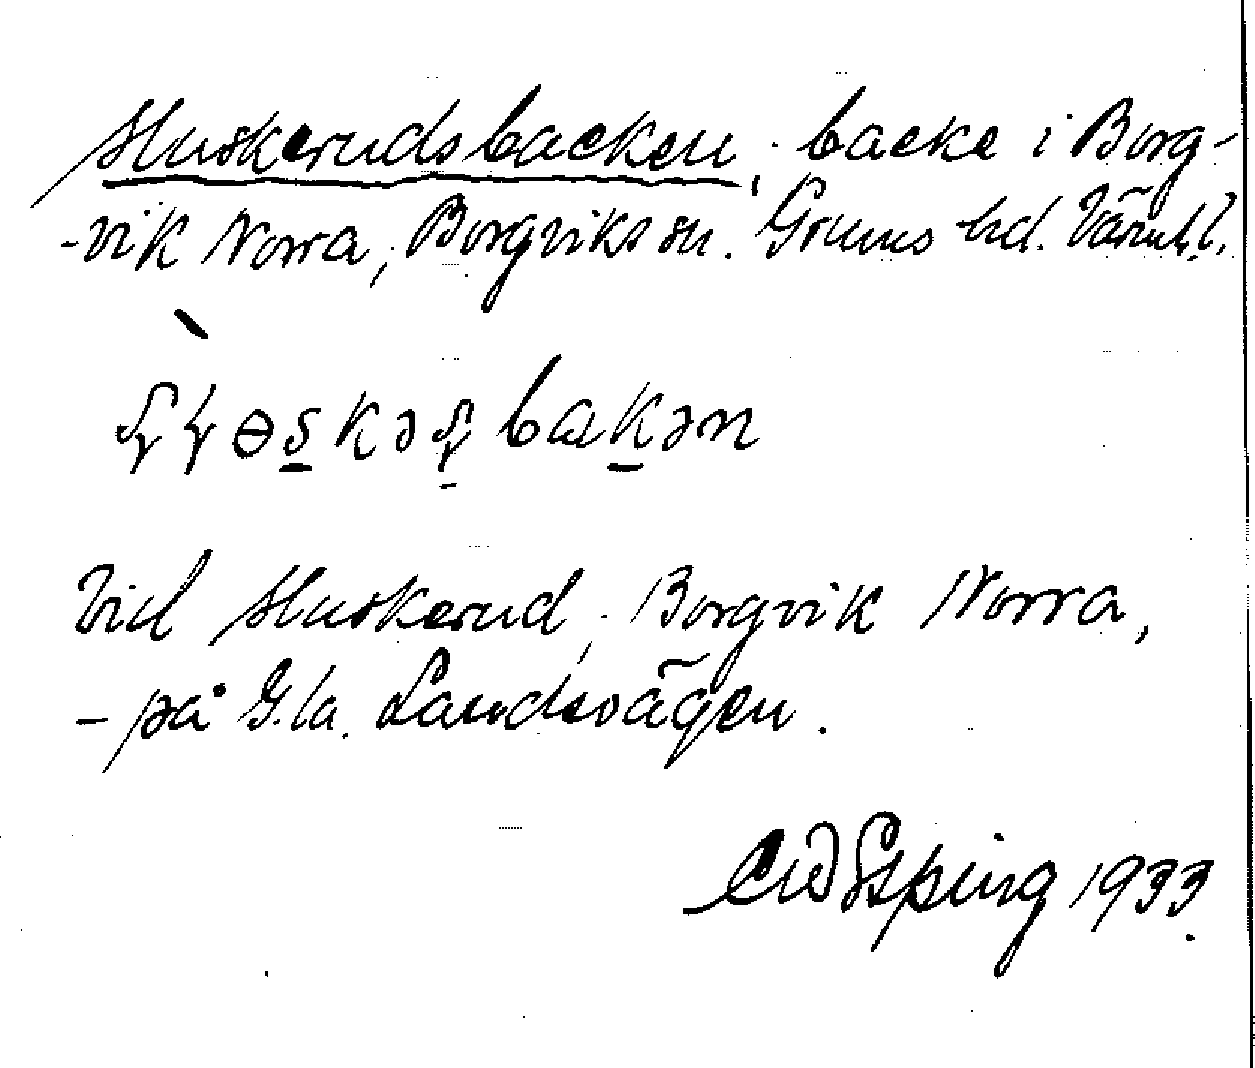 Sluskerudsbacken, backe i Borg-
-vik Norra, Borgviks sn. Grums hd. Värml.
ʂɭɵs̱kəʂ̱bæḵən
Vid Sluskerud, Borgvik Norra,
- på G:la. Landsvägen.
Esping 1933.